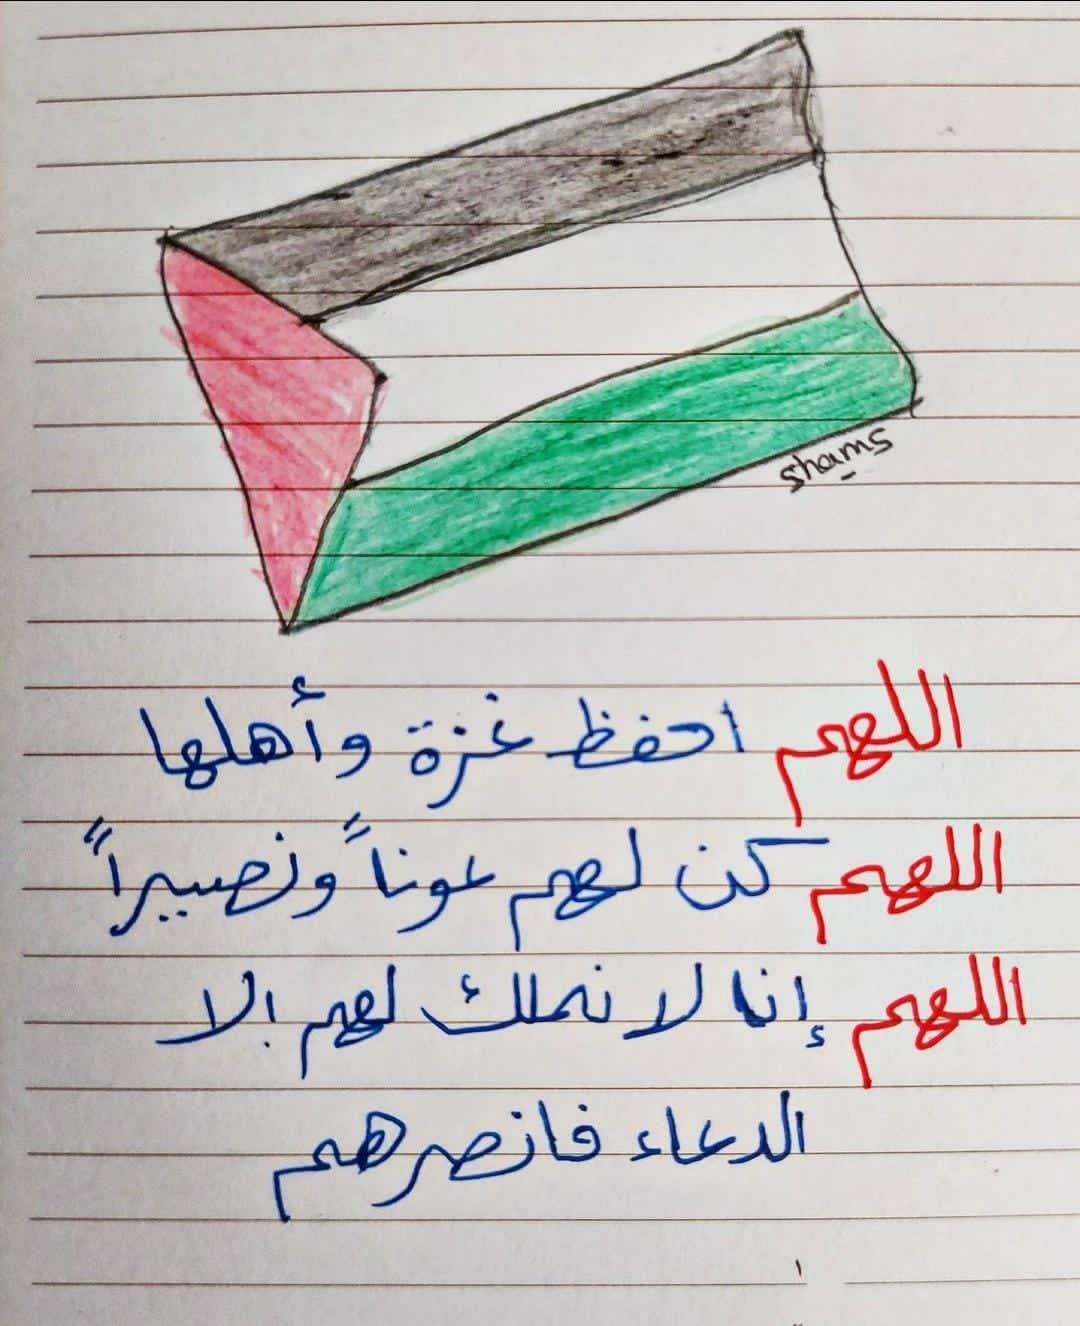 shams
اللهم احفظ غزة وأهلها
اللهم كن لهم عوناً ونصيراً
اللهم إنا لا نملك لهم إلا
الدعاء فانصرهم